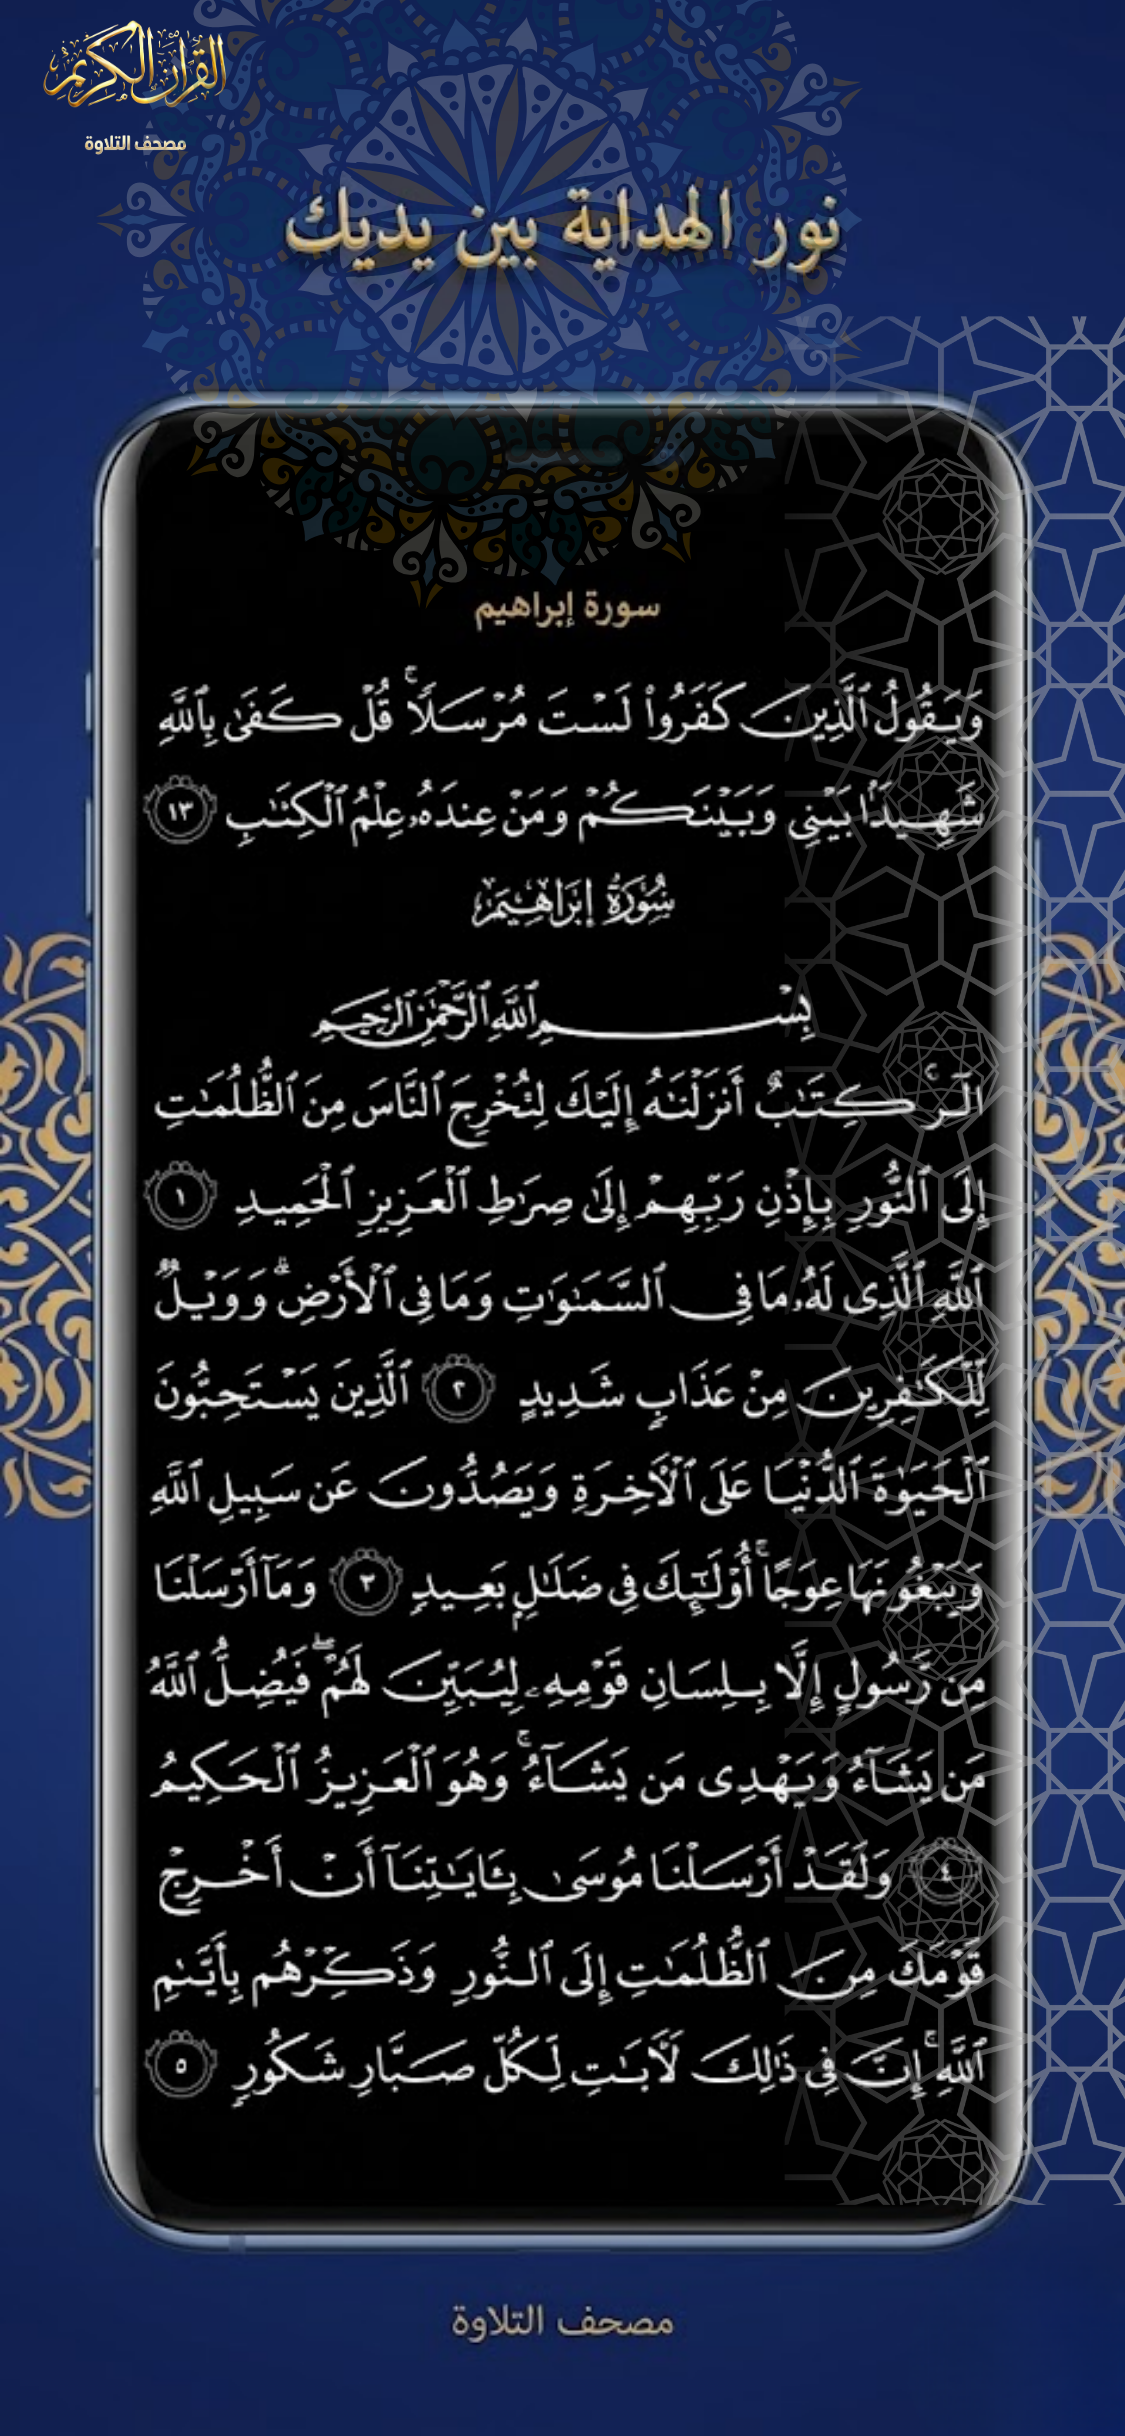 القرآن الكريم
مصحف التلاوة
نور الهداية بين يديك
سورة إبراهيم
وَيَقُولُ ٱلَّذِينَ كَفَرُوا۟ لَسْتَ مُرْسَلًا ۚ قُلْ كَفَىٰ بِٱللَّهِ
شَهِيدًۢا بَيْنِى وَبَيْنَكُمْ وَمَنْ عِندَهُۥ عِلْمُ ٱلْكِتَٰبِ ١٣
سُورَةُ إِبْرَاهِيمَ
بِسْمِ ٱللَّهِ ٱلرَّحْمَٰنِ ٱلرَّحِيمِ
الٓر ۚ كِتَٰبٌ أَنزَلْنَٰهُ إِلَيْكَ لِتُخْرِجَ ٱلنَّاسَ مِنَ ٱلظُّلُمَٰتِ
إِلَى ٱلنُّورِ بِإِذْنِ رَبِّهِمْ إِلَىٰ صِرَٰطِ ٱلْعَزِيزِ ٱلْحَمِيدِ ١
ٱللَّهِ ٱلَّذِى لَهُۥ مَا فِى ٱلسَّمَٰوَٰتِ وَمَا فِى ٱلْأَرْضِ ۗ وَوَيْلٌ
لِّلْكَٰفِرِينَ مِنْ عَذَابٍ شَدِيدٍ ٢ ٱلَّذِينَ يَسْتَحِبُّونَ
ٱلْحَيَوٰةَ ٱلدُّنْيَا عَلَى ٱلْأَخِرَةِ وَيَصُدُّونَ عَن سَبِيلِ ٱللَّهِ
وَيَبْغُونَهَا عِوَجًا ۚ أُو۟لَٰٓئِكَ فِى ضَلَٰلٍۭ بَعِيدٍ ٣ وَمَآ أَرْسَلْنَا
مِن رَّسُولٍ إِلَّا بِلِسَانِ قَوْمِهِۦ لِيُبَيِّنَ لَهُمْ ۖ فَيُضِلُّ ٱللَّهُ
مَن يَشَآءُ وَيَهْدِى مَن يَشَآءُ ۚ وَهُوَ ٱلْعَزِيزُ ٱلْحَكِيمُ
٤ وَلَقَدْ أَرْسَلْنَا مُوسَىٰ بِـَٔايَٰتِنَآ أَنْ أَخْرِجْ
قَوْمَكَ مِنَ ٱلظُّلُمَٰتِ إِلَى ٱلنُّورِ وَذَكِّرْهُم بِأَيَّىٰمِ
ٱللَّهِ ۚ إِنَّ فِى ذَٰلِكَ لَأَيَٰتٍ لِّكُلِّ صَبَّارٍ شَكُورٍ ٥
مصحف التلاوة